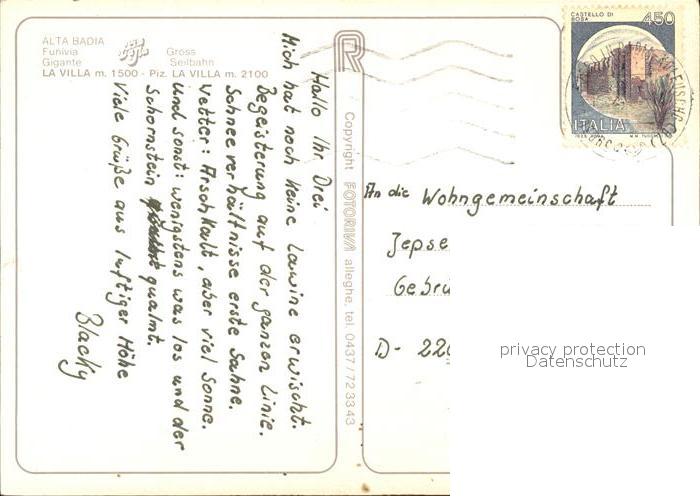 ALTA BADIA
Funivia Gross
Gigante Seilbahn
LA VILLA m. 1500 - Piz. LA VILLA m. 2100
Hallo Ihr Drei
Mich hat noch keine Lawine erwischt.
Begeisterung auf der ganzen Linie.
Schneeverhältnisse erste Sahne.
Wetter: Arschkalt, aber viel Sonne.
und sonst: wenigstens was los und der
Schornstein qualmt.
Viele Grüße aus luftiger Höhe
Blacky
Copyright FOTORIVA alleghe, tel. 0437/723343
CASTELLO DI
BOSA
450
ITALIA
An die Wohngemeinschaft
Jepse
Gebrü
D- 220
privacy protection
Datenschutz